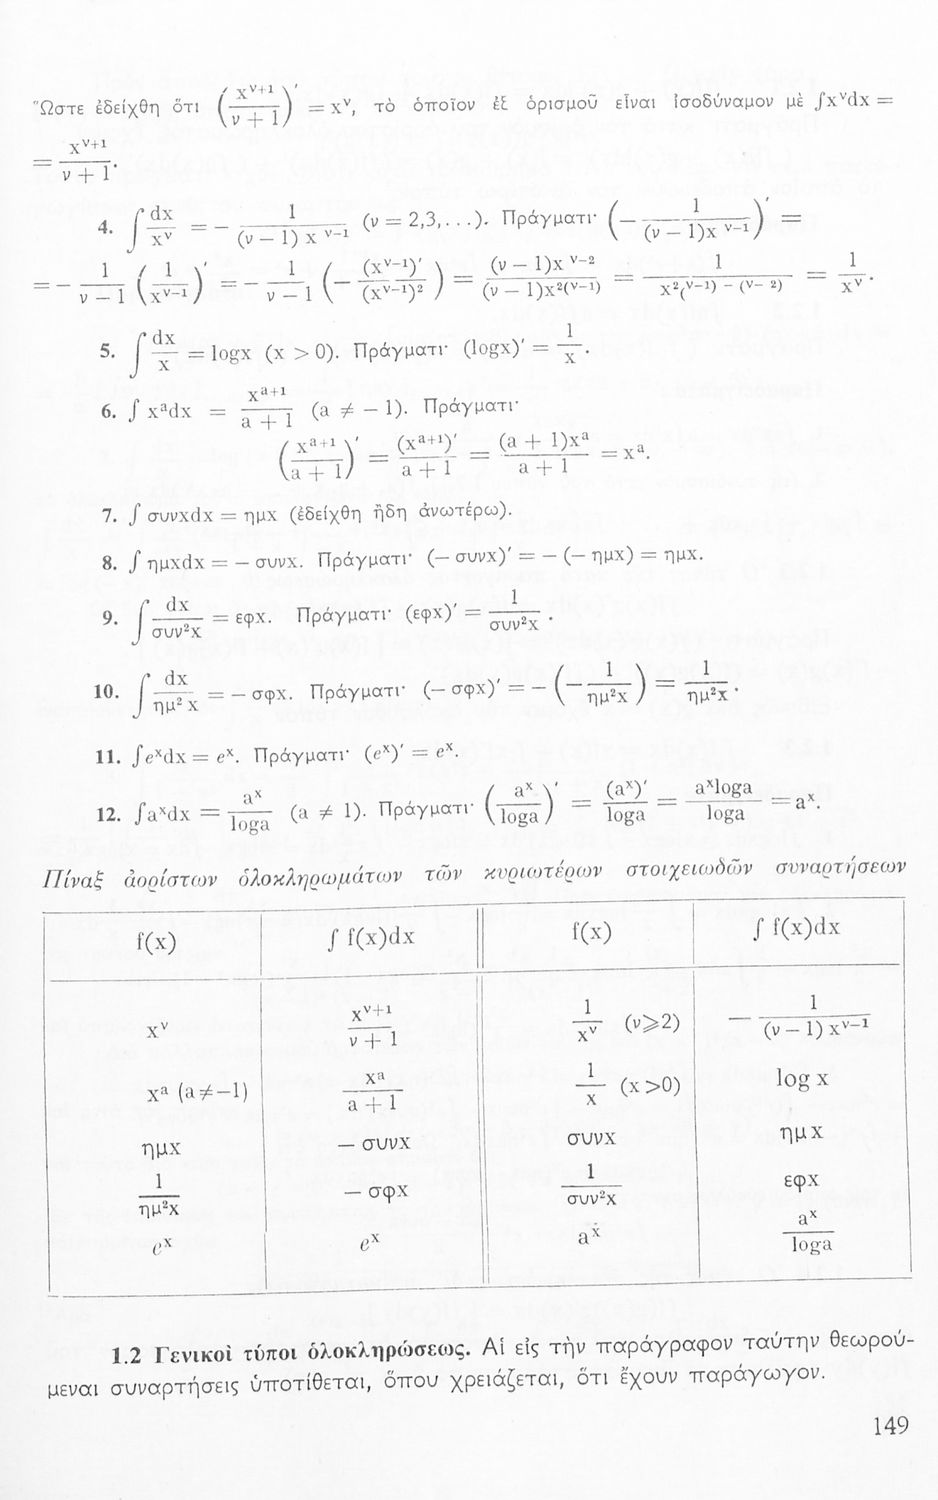 Ὥστε ἐδείχθη ὅτι (x^{ν+1}/(ν + 1))′ = x^ν, τὸ ὁποῖον ἐξ ὁρισμοῦ εἶναι ἰσοδύναμον μὲ ∫x^νdx =
= x^{ν+1}/(ν + 1).
4. ∫ dx/x^ν = − 1/((ν − 1) x^{ν−1}) (ν = 2,3,...). Πράγματι· (− 1/((ν − 1)x^{ν−1}))′ =
= − 1/(ν − 1) (1/x^{ν−1})′ = − 1/(ν − 1) (− (x^{ν−1})′/(x^{ν−1})²) = (ν − 1)x^{ν−2}/((ν − 1)x^{2(ν−1)}) = 1/x^{2(ν−1) − (ν−2)} = 1/x^ν.
5. ∫ dx/x = logx (x > 0). Πράγματι· (logx)′ = 1/x.
6. ∫ x^adx = x^{a+1}/(a + 1) (a ≠ − 1). Πράγματι·
(x^{a+1}/(a + 1))′ = (x^{a+1})′/(a + 1) = (a + 1)x^a/(a + 1) = x^a.
7. ∫ συνxdx = ημx (ἐδείχθη ἤδη ἀνωτέρω).
8. ∫ ημxdx = − συνx. Πράγματι· (− συνx)′ = − (− ημx) = ημx.
9. ∫ dx/συν²x = εφx. Πράγματι· (εφx)′ = 1/συν²x.
10. ∫ dx/ημ²x = − σφx. Πράγματι· (− σφx)′ = − (− 1/ημ²x) = 1/ημ²x.
11. ∫e^xdx = e^x. Πράγματι· (e^x)′ = e^x.
12. ∫a^xdx = a^x/loga (a ≠ 1). Πράγματι· (a^x/loga)′ = (a^x)′/loga = a^xloga/loga = a^x.
Πίναξ ἀορίστων ὁλοκληρωμάτων τῶν κυριωτέρων στοιχειωδῶν συναρτήσεων
f(x) ∫ f(x)dx f(x) ∫ f(x)dx
x^ν x^{ν+1}/(ν + 1) 1/x^ν (ν⩾2) − 1/((ν − 1) x^{ν−1})
x^a (a≠−1) x^a/(a + 1) 1/x (x>0) log x
ημx − συνx συνx ημx
1/ημ²x − σφx 1/συν²x εφx
e^x e^x a^x a^x/loga
1.2 Γενικοὶ τύποι ὁλοκληρώσεως. Αἱ εἰς τὴν παράγραφον ταύτην θεωρού-
μεναι συναρτήσεις ὑποτίθεται, ὅπου χρειάζεται, ὅτι ἔχουν παράγωγον.
149